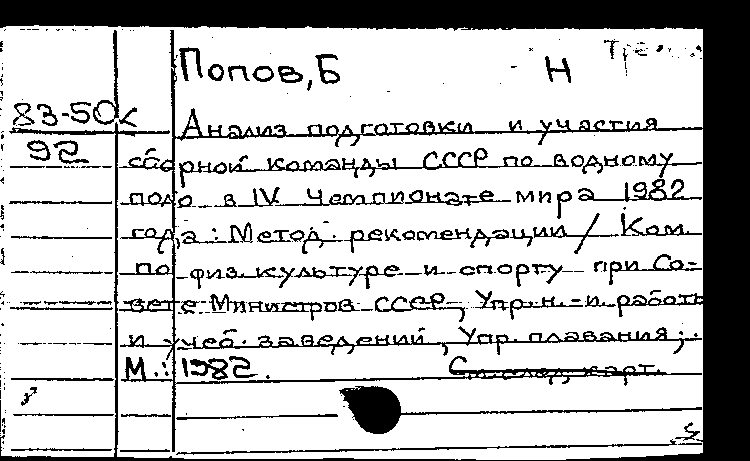 Попов, Б Н
83-50к
92
Анализ подготовки и участия
сборной команды СССР по водному
поло в IV Чемпионате мира 1982
года: Метод. рекомендации / Ком.
по физ. культуре и спорту при Со-
вете Министров СССР, Упр. н.-и. работы
и учеб. заведений, Упр. плавания;.
М.: 1982. См. след. карт.